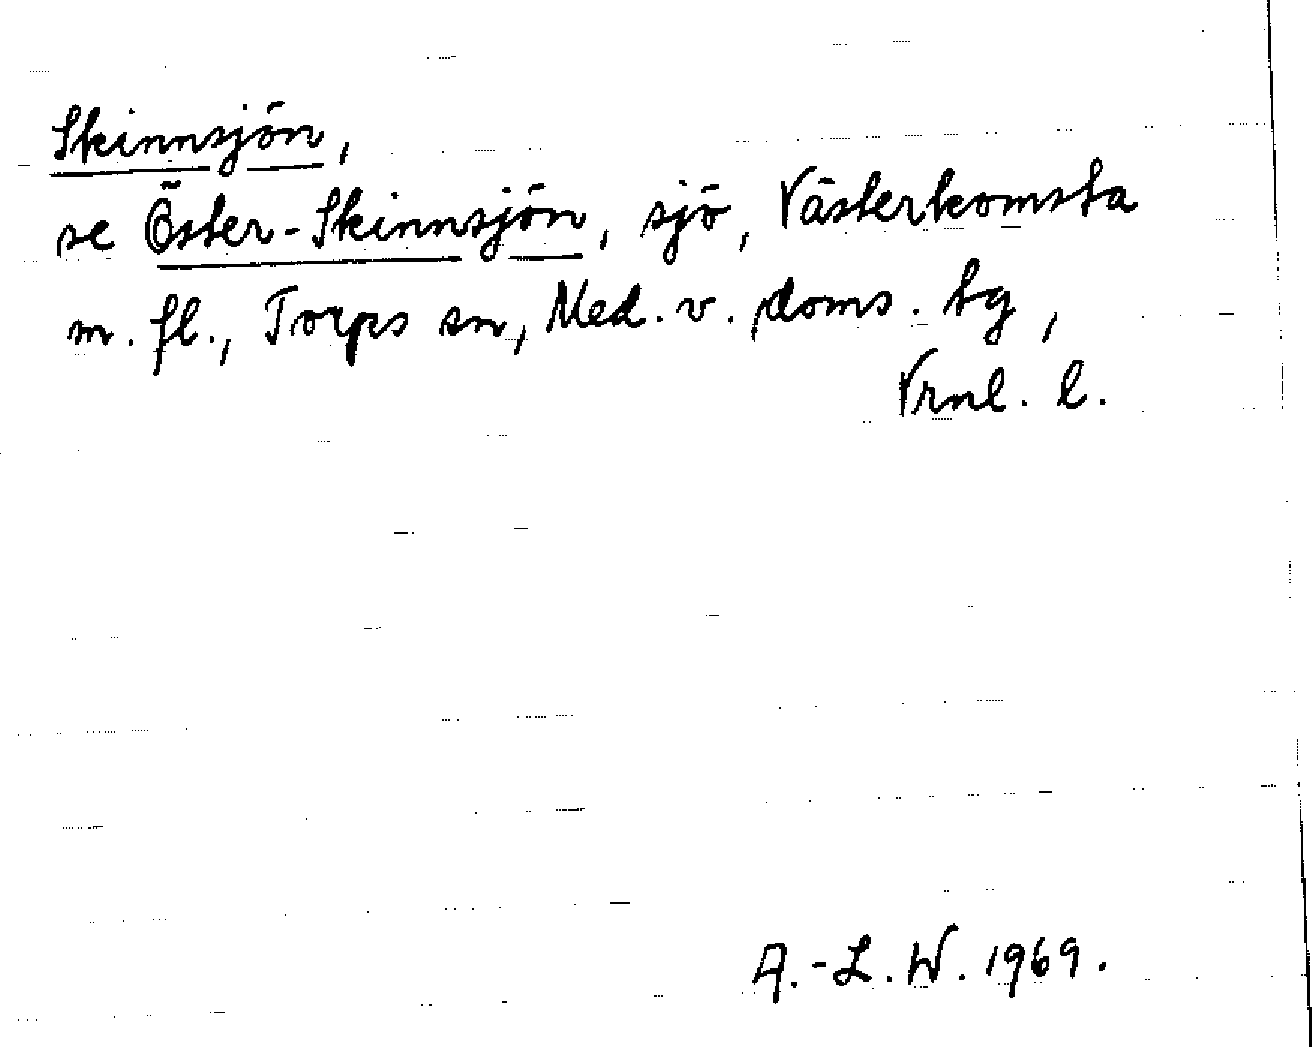 Skinnsjön,
se Öster-Skinnsjön, sjö, Västerkomsta
m. fl., Torps sn, Med. v. doms. tg,
Vrnl. l.
A.-L. W. 1969.